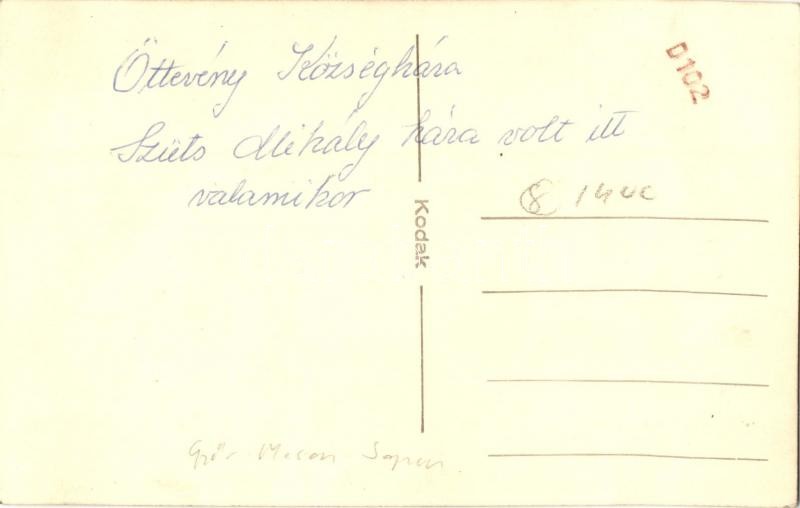 Öttevény Községháza
Szüts Mihály háza volt itt
valamikor
D102
8
Kodak
Győr Moson Sopron